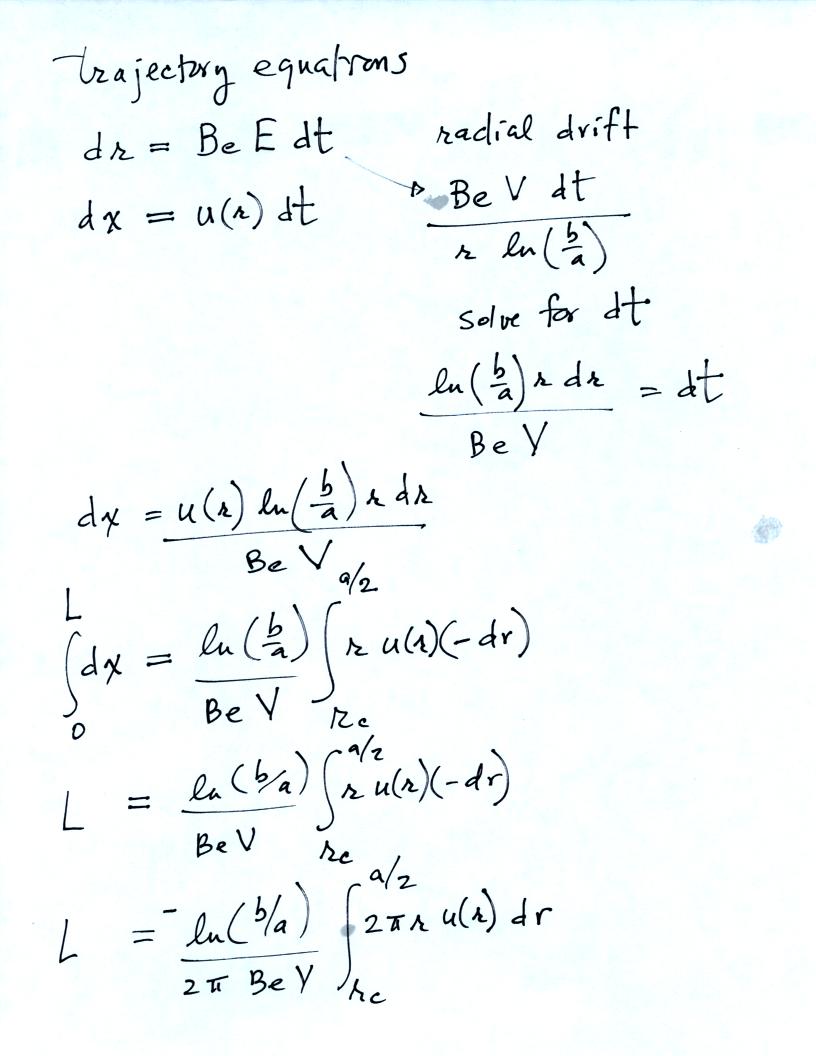 trajectory equations
dr = Be E dt
dx = u(r) dt
radial drift
Be V dt
r ln(b/a)
solve for dt
ln(b/a) r dr / Be V = dt
dx = u(r) ln(b/a) r dr / Be V
∫₀ᴸ dx = ln(b/a) / Be V ∫_{rc}^{a/2} r u(r)(-dr)
L = ln(b/a) / Be V ∫_{rc}^{a/2} r u(r)(-dr)
L = -ln(b/a) / 2π Be V ∫_{rc}^{a/2} 2πr u(r) dr